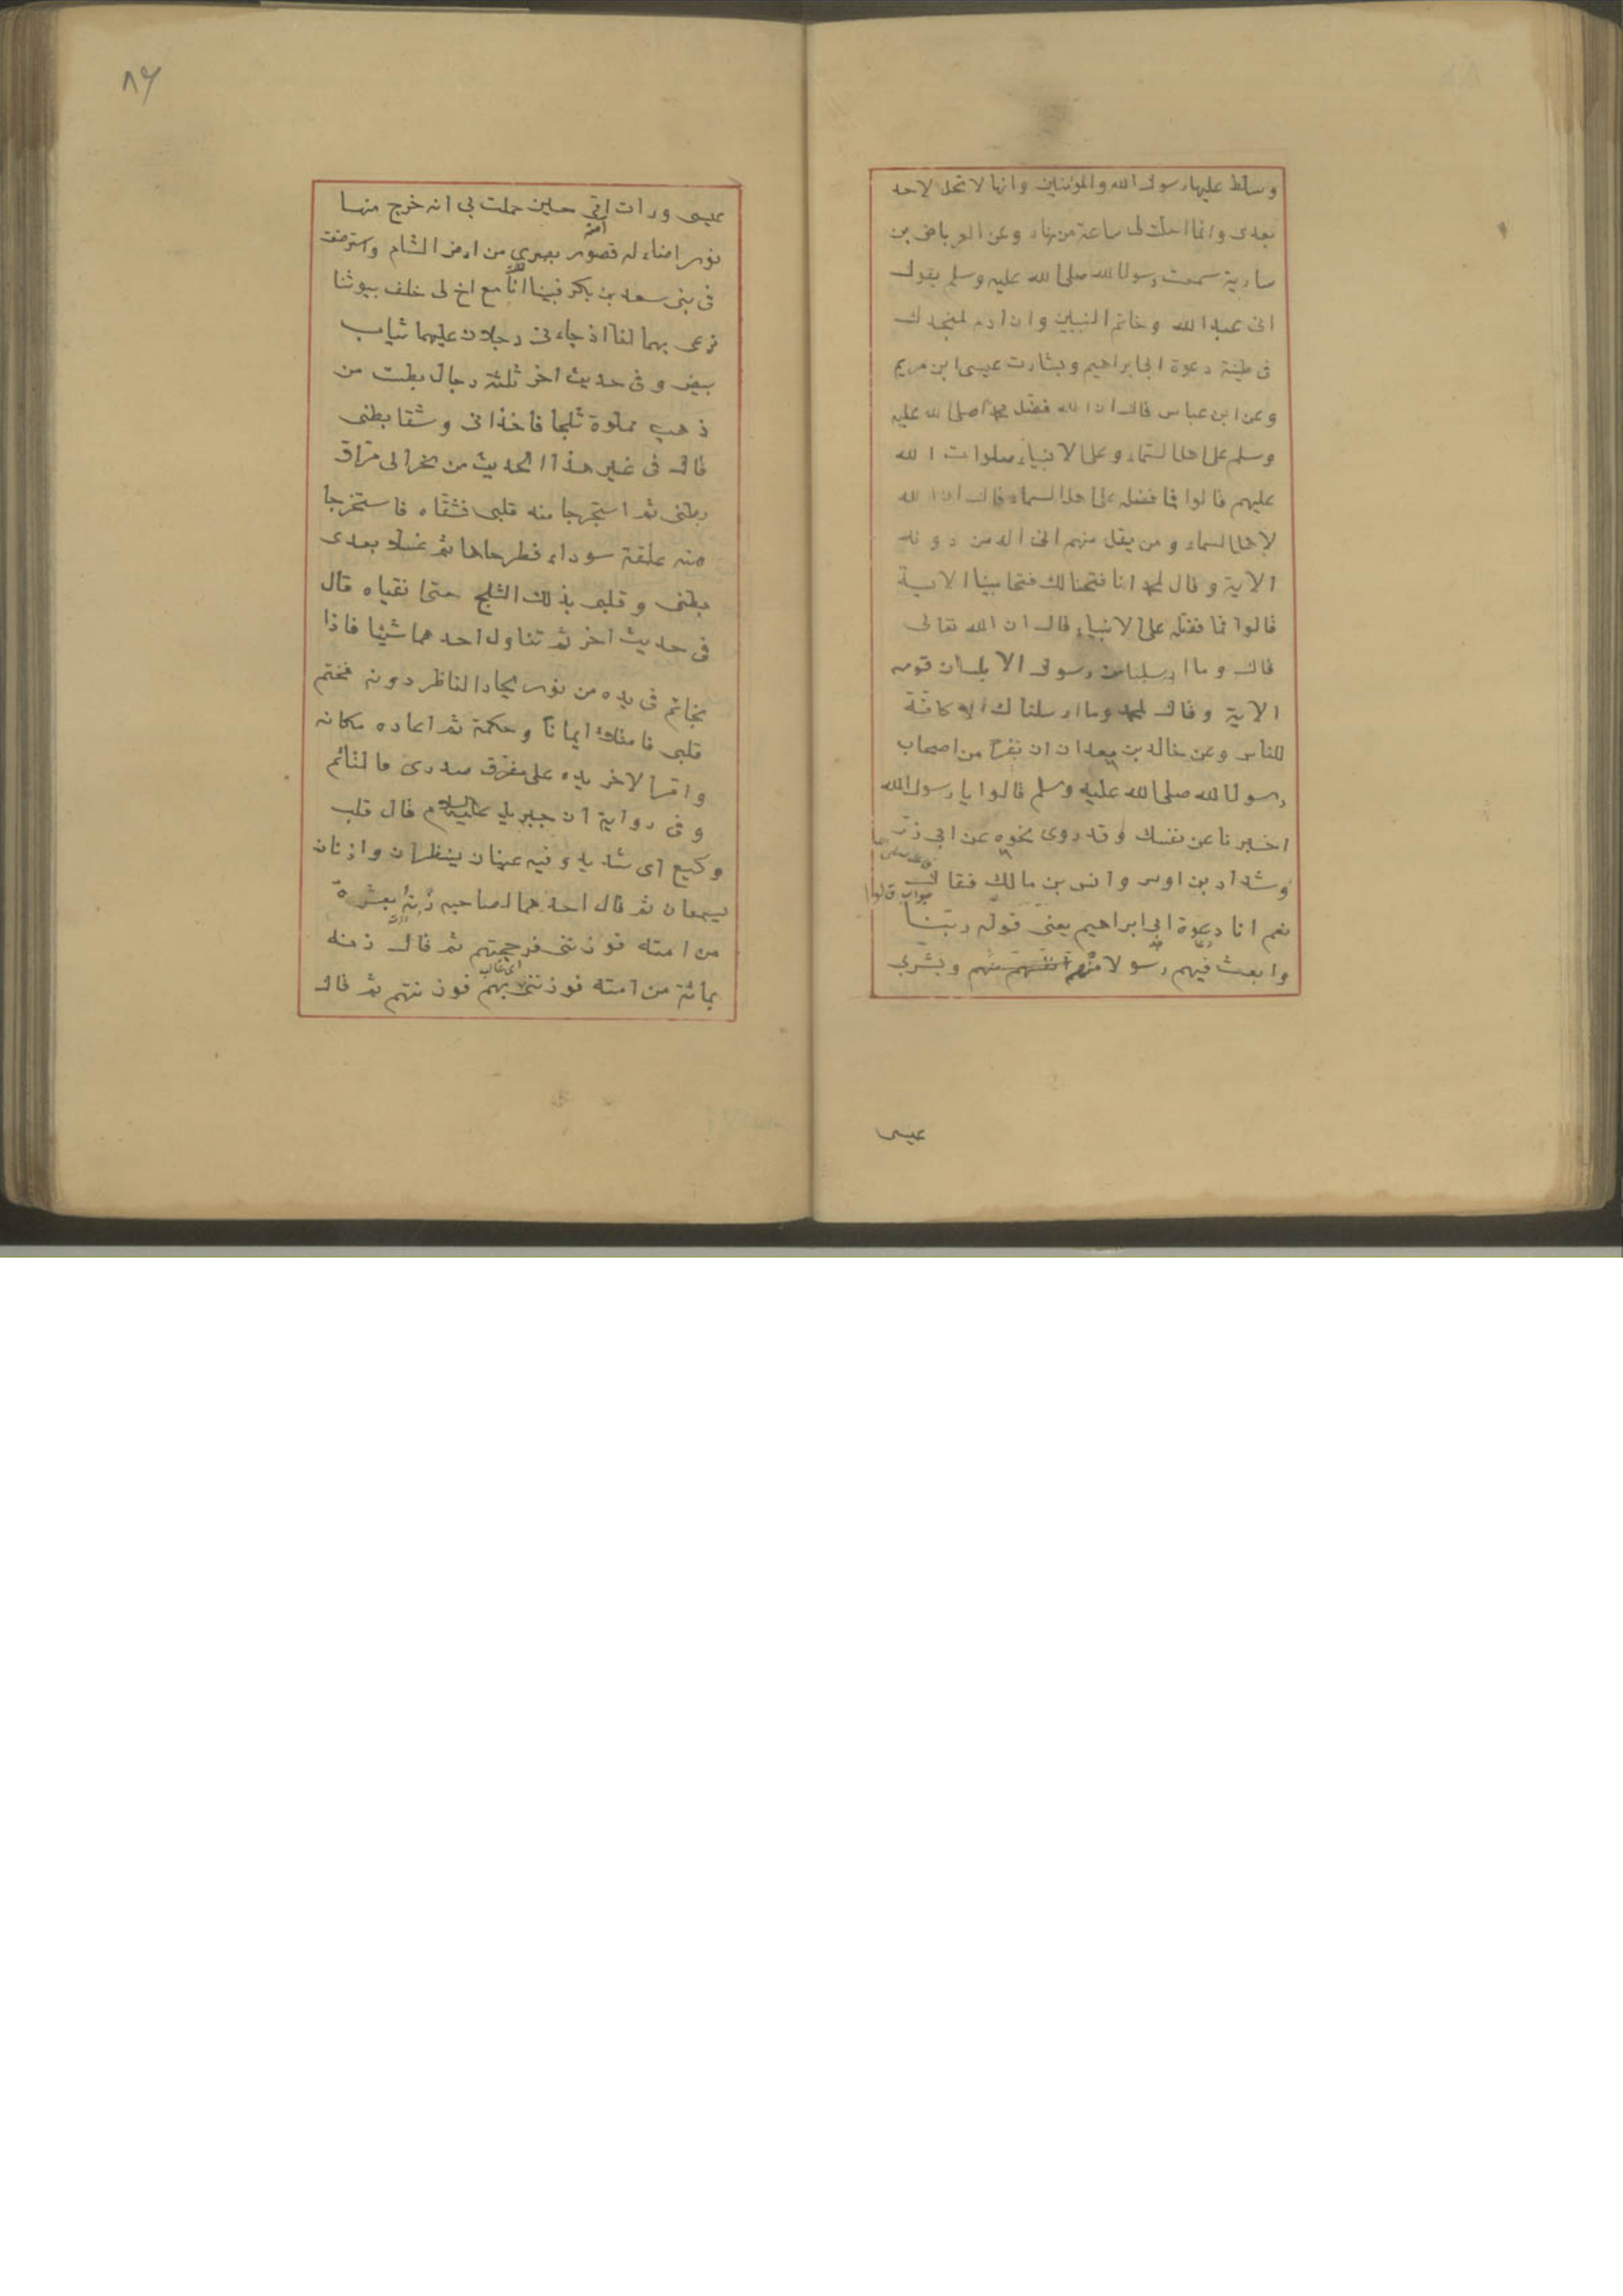 وسلط عليها رسوله والمؤمنين وانها لا تحل لاحد
بعدى وانما احلت لى ساعة من نهار وعن العرباض بن
سارية سمعت رسول الله صلى الله عليه وسلم يقول
انى عبد الله وخاتم النبيين وان ادم لمنجدل
فى طينة دعوة ابى ابراهيم وبشارت عيسى ابن مريم
وعن ابن عباس قال ان الله فضل محمدا صلى الله عليه
وسلم على اهل السماء وعلى الانبياء صلوات الله
عليهم قالوا فما فضله على اهل السماء قال ان الله
لاهل السماء ومن يقل منهم انى اله من دونه
الاية وقال لمحمد انا فتحنا لك فتحا مبينا الاية
قالوا فما فضله على الانبياء قال ان الله تعالى
قال وما ارسلنا من رسول الا بلسان قومه
الاية وقال لمحمد وما ارسلناك الا كافة
للناس وعن خالد بن معدان ان نفرا من اصحاب
رسول الله صلى الله عليه وسلم قالوا يا رسول الله
اخبرنا عن نفسك وقد روى نحوه عن ابى ذر
وشداد بن اوس وانس بن مالك فقال
جواب قالوا
نعم انا دعوة ابى ابراهيم يعنى قوله ربنا
وابعث فيهم رسولا منهم وبشرى
عيسى
٨٦
عيسى ورات امى حين حملت بى انه خرج منها
امنة
نور اضاء له قصور بصرى من ارض الشام واسترضعت
فى بنى سعد بن بكر فبينا انا مع اخ لى خلف بيوتنا
نرعى بهما لنا اذ جاءنى رجلان عليهما ثياب
بيض وفى حديث اخر ثلثة رجال بطست من
ذهب مملوة ثلجا فاخذانى وشقا بطنى
قال فى غير هذا الحديث من نحرى الى مراق
بطنى ثم استخرجا منه قلبى فشقاه فاستخرجا
منه علقة سوداء فطرحاها ثم غسلا بعدى
بطنى وقلبى بذلك الثلج حتى انقياه قال
فى حديث اخر ثم تناول احدهما شيئا فاذا
بخاتم فى يده من نور يحار الناظر دونه فختم
قلبى فامتلأ ايمانا وحكمة ثم اعاده مكانه
وامر الاخر يده على مفرق صدرى فالتئم
وفى رواية ان جبريل عليه السلام قال قلب
وكيع اى شديد وفيه عينان ينظران واذنان
يسمعان ثم قال احدهما لصاحبه زنه بعشرة
من امته فوزننى فرجحتهم ثم قال زنه
اى غالب
بمائة من امته فوزننى بهم فوزنتهم ثم قال